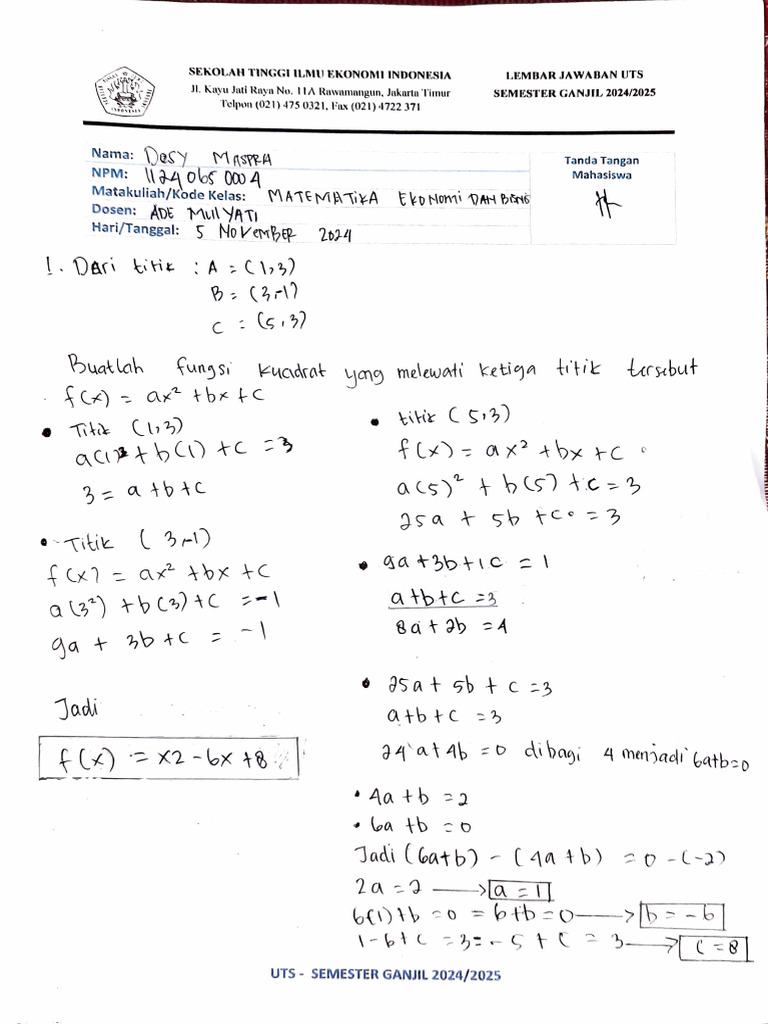 SEKOLAH TINGGI ILMU EKONOMI INDONESIA
Jl. Kayu Jati Raya No. 11A Rawamangun, Jakarta Timur
Telpon (021) 475 0321, Fax (021) 4722 371
LEMBAR JAWABAN UTS
SEMESTER GANJIL 2024/2025
Nama: DESY MASPRA
NPM: 1124 065 000 4
Matakuliah/Kode Kelas: MATEMATIKA EKONOMI DAN BISNIS
Dosen: ADE MULYATI
Hari/Tanggal: 5 NOVEMBER 2024
Tanda Tangan
Mahasiswa
1. Dari titik : A = (1,3)
B = (3,-1)
C = (5,3)
Buatlah fungsi kuadrat yang melewati ketiga titik tersebut
f(x) = ax² + bx + c
• Titik (1,3)
a(1)² + b(1) + c = 3
3 = a + b + c
• Titik (3,-1)
f(x) = ax² + bx + c
a(3²) + b(3) + c = -1
9a + 3b + c = -1
Jadi
f(x) = x2 - 6x + 8
• titik (5,3)
f(x) = ax² + bx + c
a(5)² + b(5) + c = 3
25a + 5b + c = 3
• 9a + 3b + 1c = 1
a+b+c = 3
8a + 2b = 4
• 25a + 5b + c = 3
a+b+c = 3
24 a + 4b = 0 dibagi 4 menjadi 6a+b=0
• 4a + b = 2
• 6a + b = 0
Jadi (6a+b) - (4a+b) = 0 - (-2)
2a = 2 → a = 1
6(1)+b = 0 = 6+b = 0 → b = -6
1-6+c = 3 = -5 + c = 3 → c = 8
UTS - SEMESTER GANJIL 2024/2025